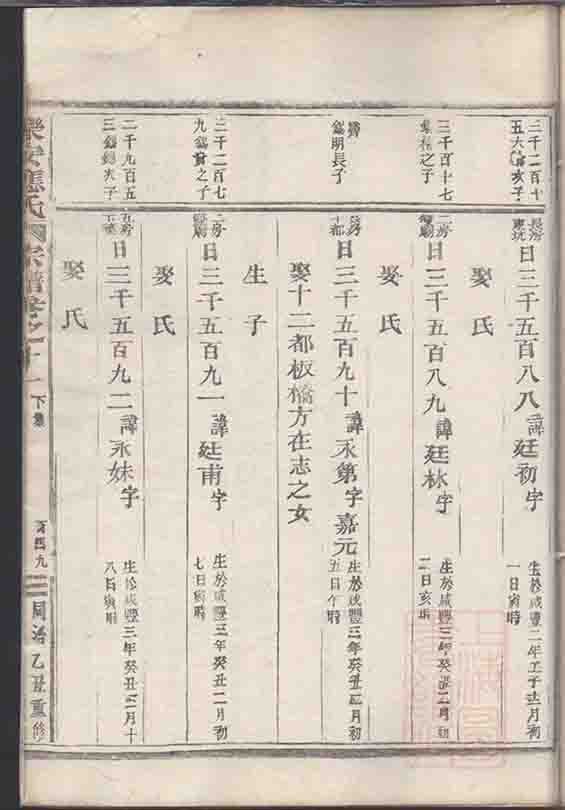 三千二百十
五大 次子
長房
東坑
日三千五百八八諱廷初字
生於咸豐二年壬子十二月初
一日寅時
娶氏
三千百十七
之子
二房
日三千五百八九諱廷林字
生於咸豐三年癸丑二月初
二日亥時
娶氏
鑑明長子
長房
十都
日三千五百九十諱永第字嘉元
生於咸豐三年癸丑正月初
五日午時
娶十二都板橋方在志之女
生子
三千二百七
九鑑 之子
二房
日三千五百九一諱廷甫字
生於咸豐三年癸丑二月初
七日寅時
娶氏
二千九百五
三鑑 次子
五房
日三千五百九二諱永妹字
生於咸豐三年癸丑二月十
八日寅時
娶氏
樂安應氏 宗譜卷之十一下集
百四九
同治乙丑重修